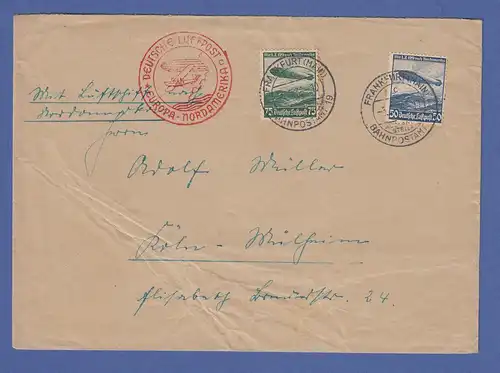 DEUTSCHE LUFTPOST
EUROPA - NORDAMERIKA
Mit Luftschiff nach
Nordamerika
FRANKFURT (MAIN)
BAHNPOSTAMT 19
75 Deutsche Luftpost 75
FRANKFURT (MAIN)
BAHNPOSTAMT
50 Deutsche Luftpost 50
Herrn
Adolf Müller
Köln - Mülheim
Elisabeth Breuerstr. 24.